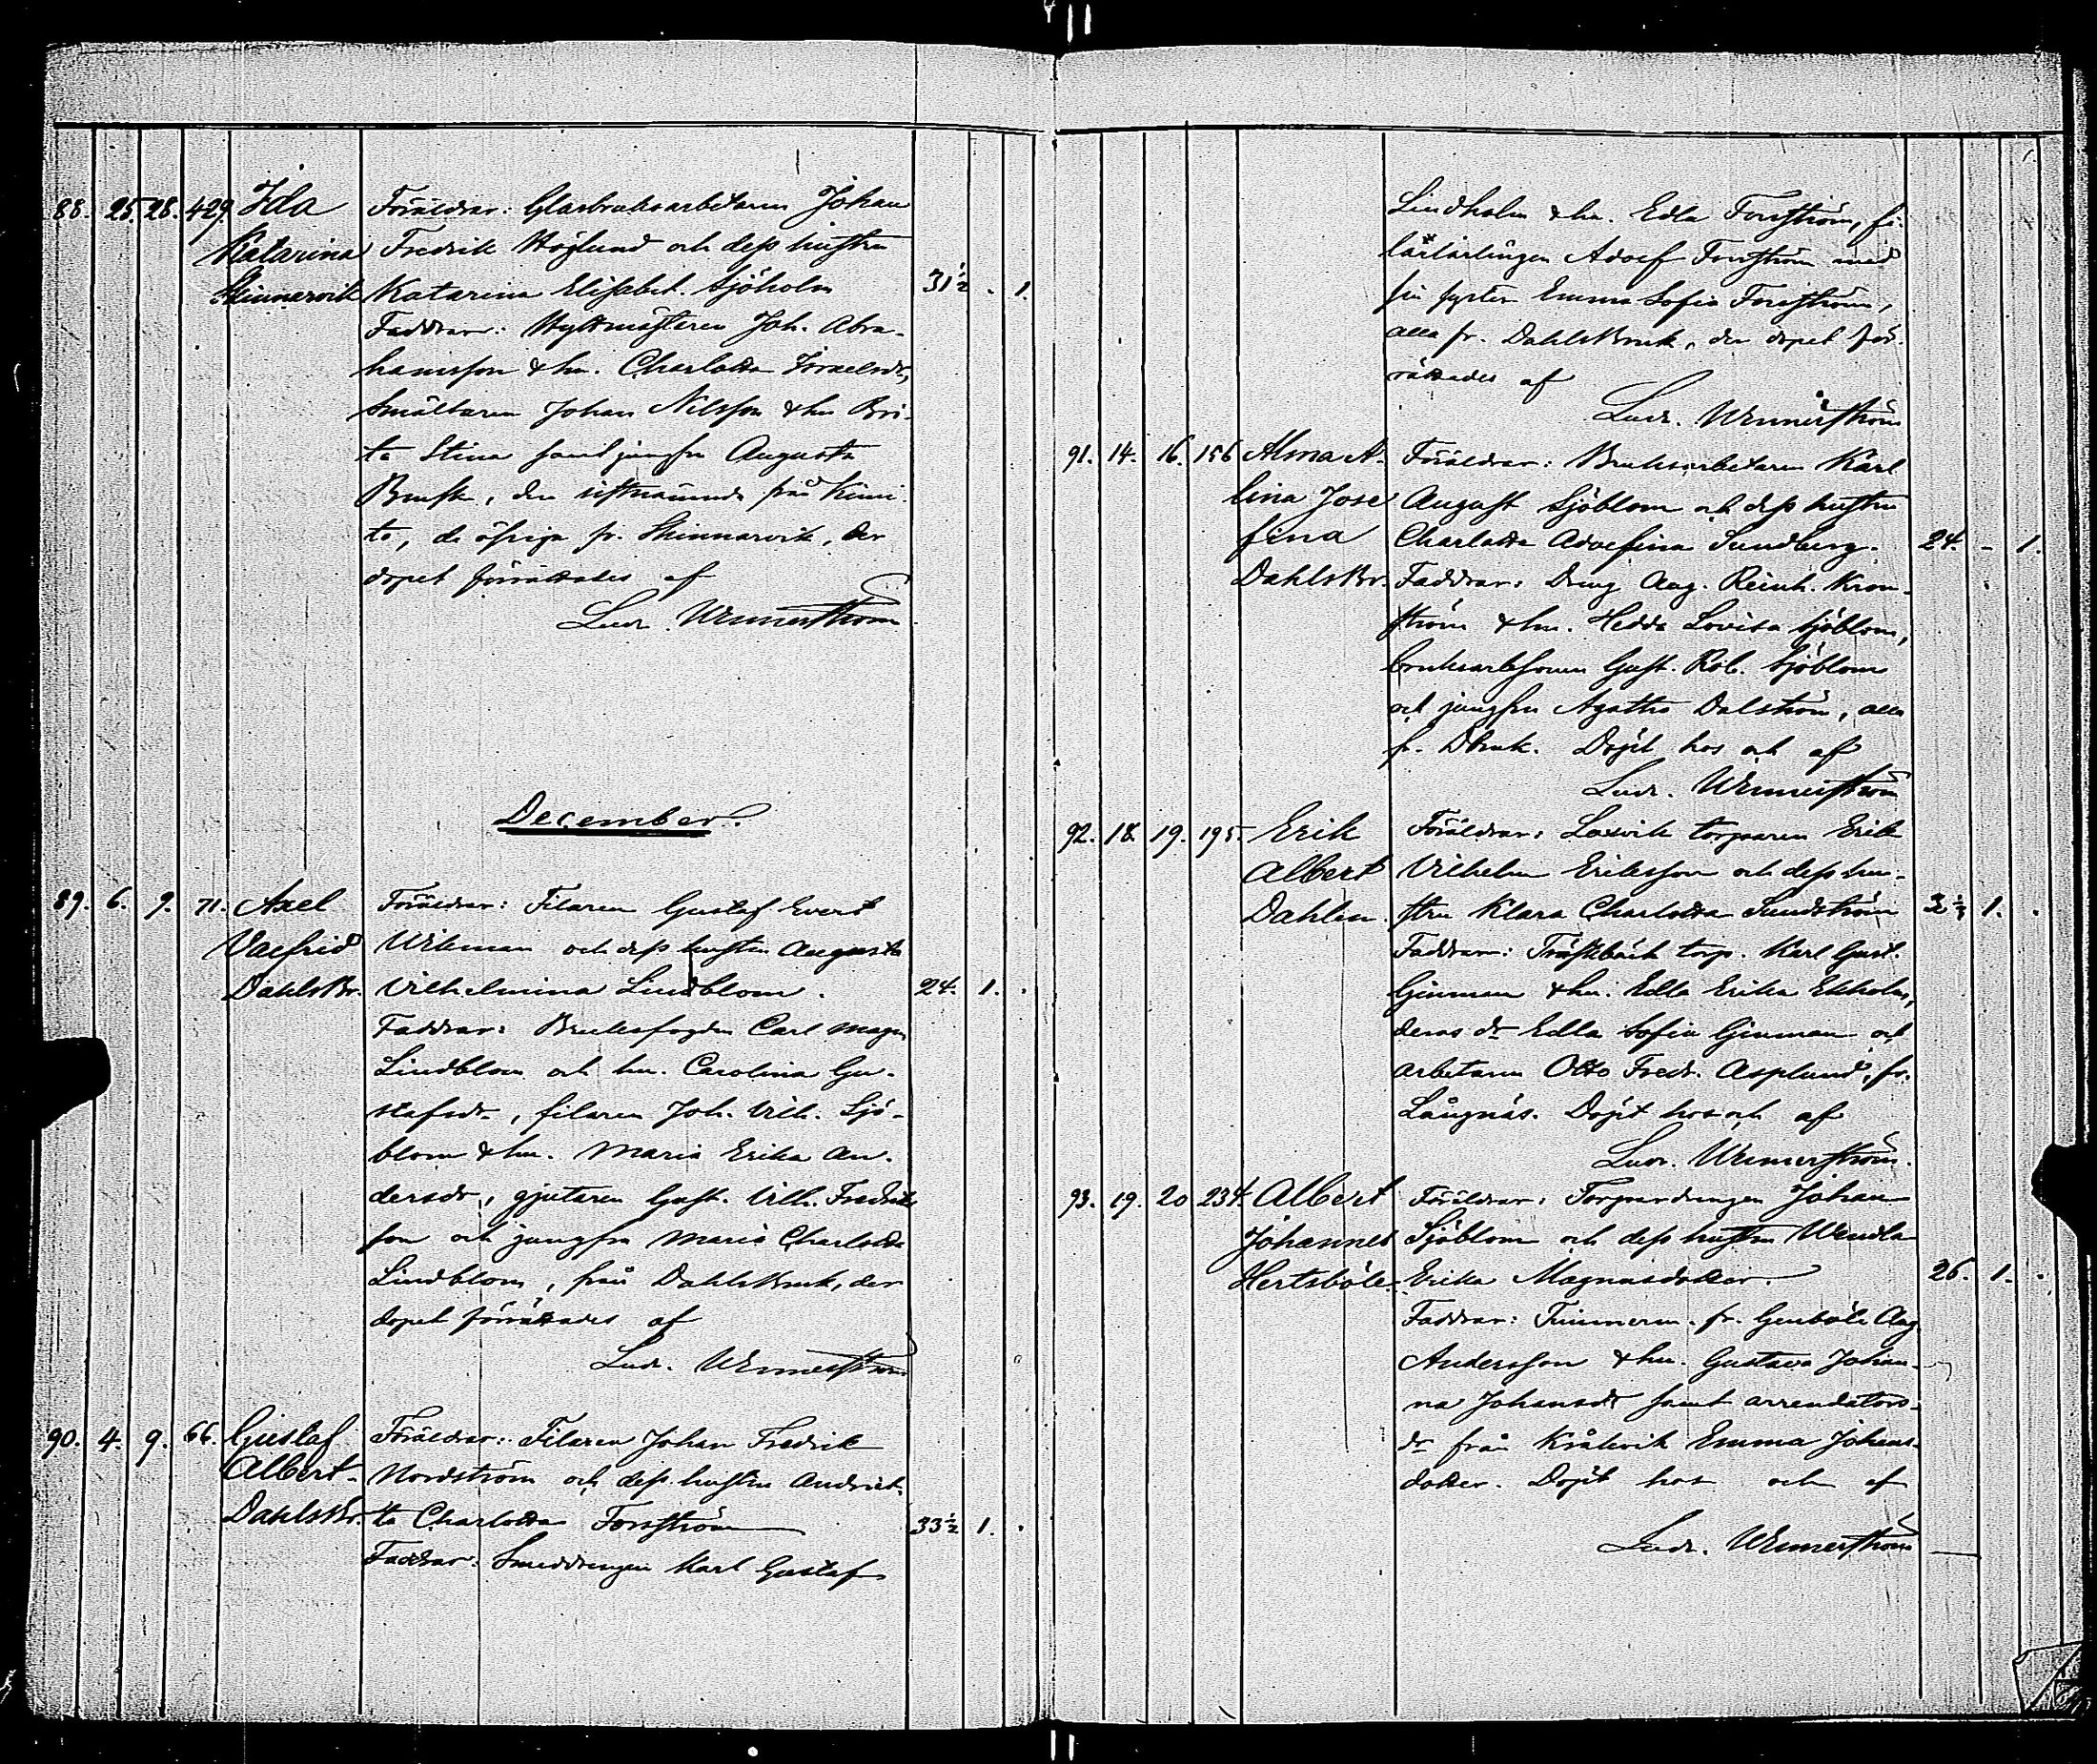 88. 25. 28. 429. Ida Föräldrar: Glasbruksarbetaren Johan
Katarina Fredrik Höglund och dess hustru
Skinnarvik Katarina Elisabet Sjöholm 31½ . 1.
Faddrar: Hyttmästaren Joh. Abra-
hamsson & hu. Charlotta Israelsdr,
smältaren Johan Nilsson & hu Bri-
ta Stina samt jungfru Augusta
den sistnämnda från Kimi-
to, de öfriga fr. Skinnarvik, der
dopet förrättades af
Ludv. Wennerström
December.
89. 6. 9. 71. Axel Föräldrar: Filaren Gustaf Evert
Valfrid Wikman och dess hustru Augusta
DahlsBr. Vilhelmina Lindblom. 24. 1. .
Faddrar: Bruksfogden Carl Magn.
Lindblom och hu. Carolina Gu-
stafsdr, filaren Joh. Vilh. Sjö-
blom & hu. Maria Erika An-
dersdr, gjutaren Gust. Vilh. Fredriks
son och jungfru Maria Charlotta
Lindblom, från DahlsBruk, der
dopet förrättades af
Ludv. Wennerström
90. 4. 9. 66. Gustaf Föräldrar: Filaren Johan Fredrik
Albert- Nordström och dess hustru Andriet-
DahlsBr. ta Charlotta Forsström 33½ 1. .
Faddrar: Smeddrengen Karl Gustaf
Lindholm & hu. Edla Forsström, fi-
larlärlingen Adolf Forsström med
sin syster Emma Sofia Forsström,
alla fr. DahlsBruk, der dopet för-
rättades af
Ludv. Wennerström
91. 14. 16. 156 Alma A- Föräldrar: Bruksarbetaren Karl
lina Jose August Sjöblom och dess hustru
fina Charlotta Adolfina Sundberg. 24. - 1.
DahlsBr. Faddrar: Dreng Aug. Reinh. Kron-
ström & hu. Hedda Lovisa Sjöblom,
Gust. Rob. Sjöblom
och jungfru Agatha Dalström, alla
fr. DBruk. Döpt hos och af
Ludv. Wennerström
92. 18. 19. 195. Erik Föräldrar: Laxvik torparen Erik
Albert Vilhelm Eriksson och dess hu-
Dahlen. stru Klara Charlotta Sundström 1. .
Faddrar: Träskbäck torp. Karl Gust.
Ginman & hu. Edla Erika Ekholm,
deras dr Edla Sofia Ginman och
arbetaren Otto Fredr. Asplund, fr.
Långnäs. Döpt hos och af
Ludv. Wennerström.
93. 19. 20 234. Albert Föräldrar: Torparedrengen Johan
Johannes Sjöblom och dess hustru Wendla
Hertsböle. Erika Magnusdotter. 26. 1. .
Faddrar: Timmerm. fr. Genböle Aug.
Andersson & hu. Gustava Johan-
na Johansdr samt arrendators-
dr från Kråkvik Emma Johans-
dotter. Döpt hos och af
Ludv. Wennerström